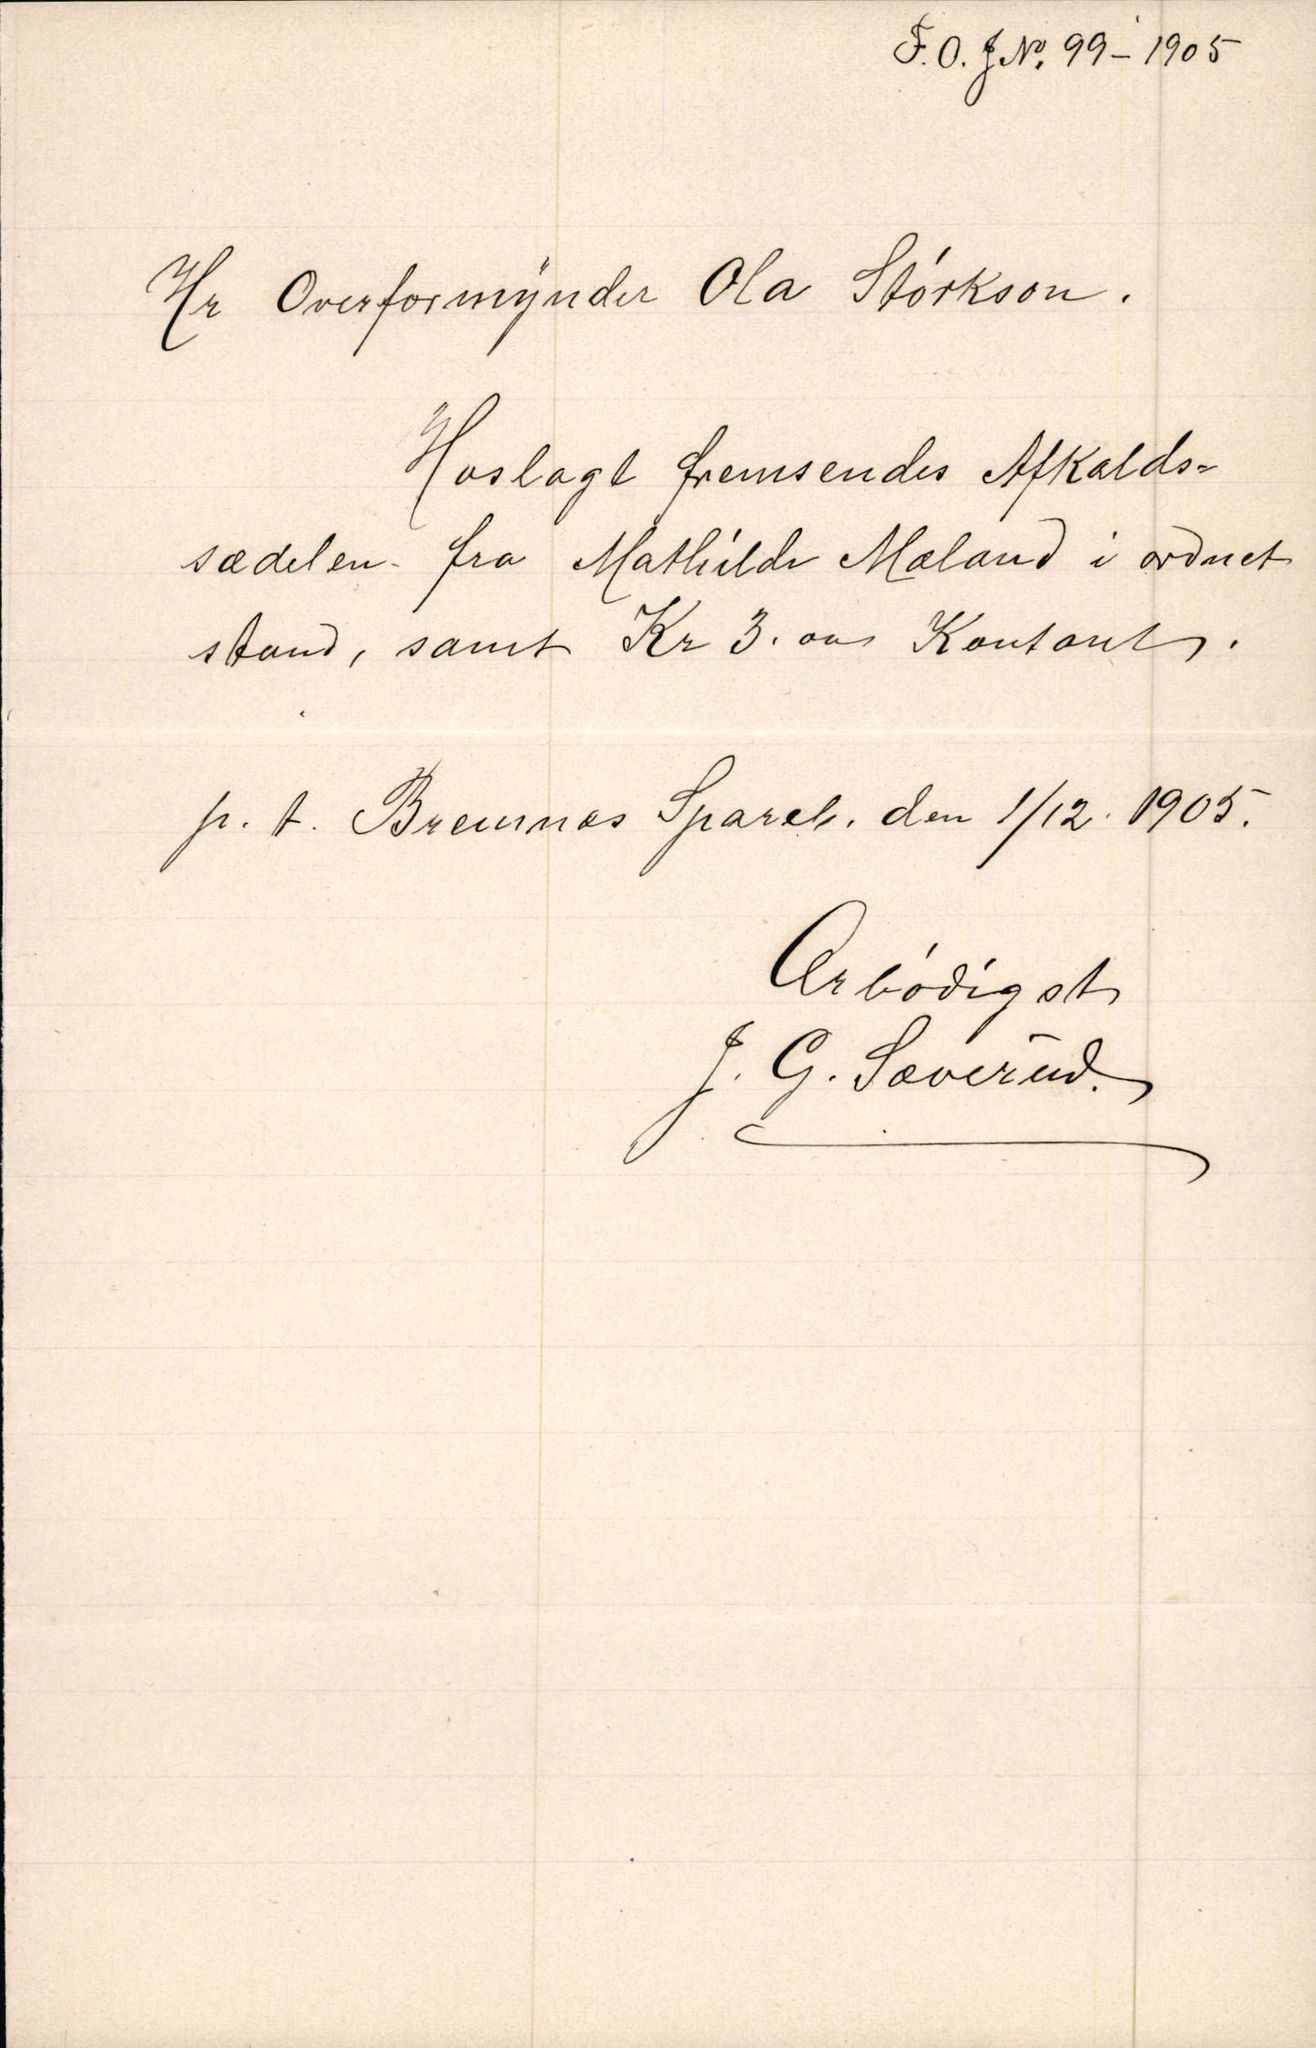 F.O.J No. 99 – 1905
Hr Overformynder Ola Størkson.
Hoslagt fremsendes Afkalds-
sædelen fra Mathilde Mæland i ordnet
stand, samt Kr 3.00 Kontant.
p. t. Bremnes Spareb. den 1/12. 1905.
Ærbødigst
J. G. Sæverud.